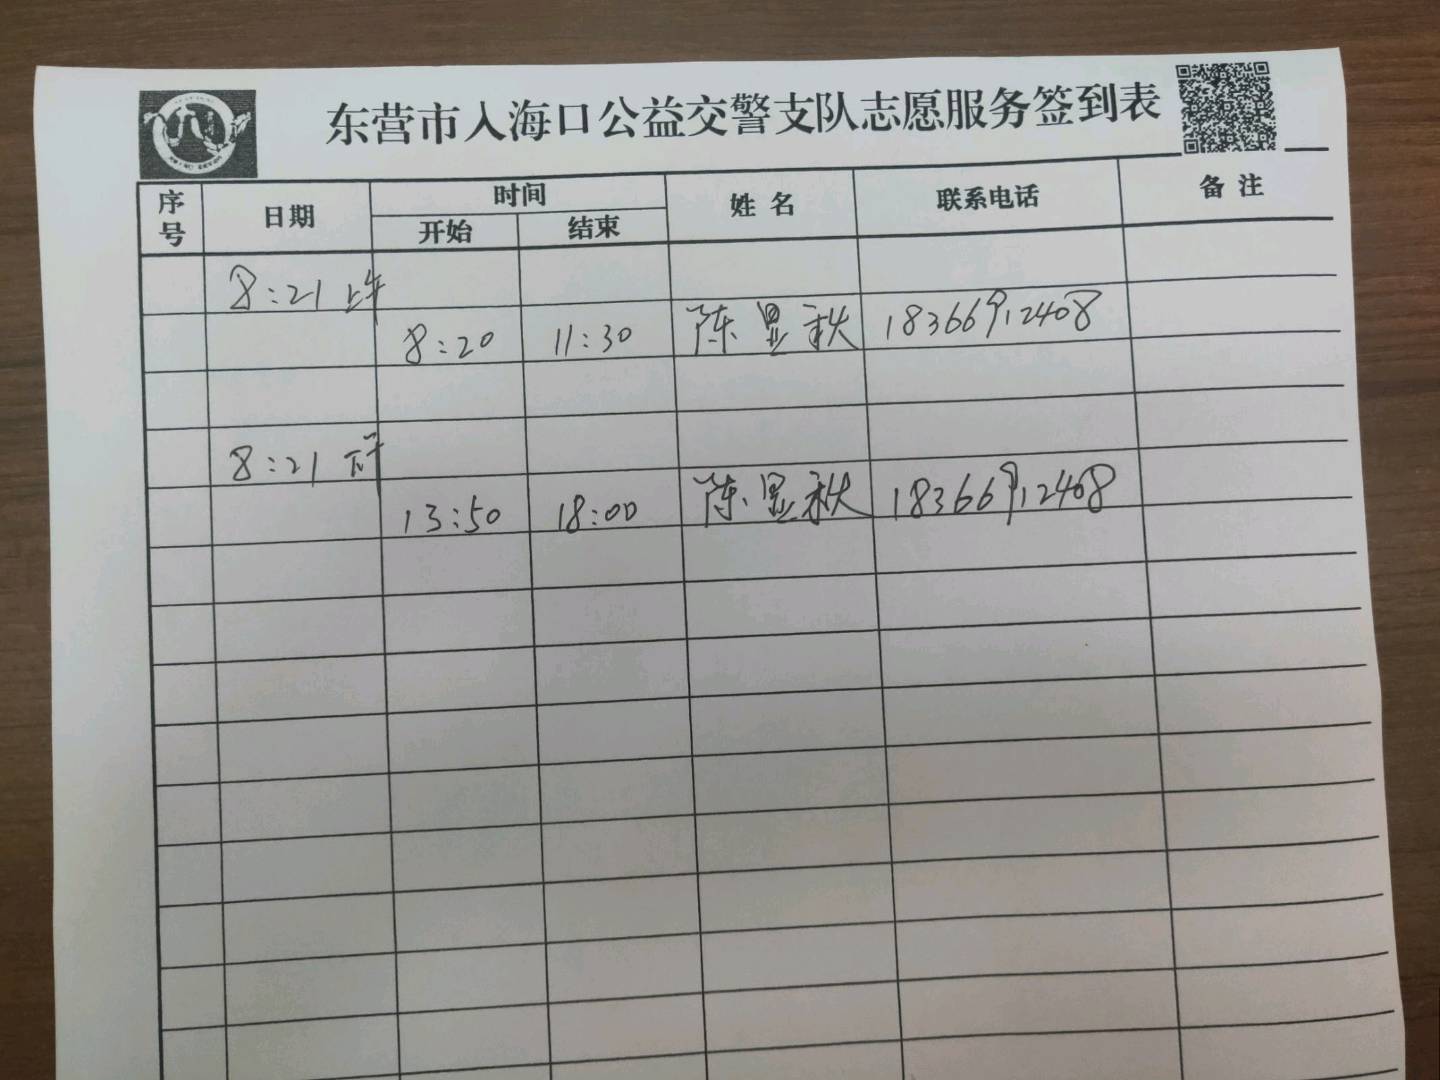 东营市入海口公益交警支队志愿服务签到表
序号 日期 时间 姓名 联系电话 备注
开始 结束
8:21 上午
8:20 11:30 陈显秋 18366912408
8:21 下午
13:50 18:00 陈显秋 18366912408